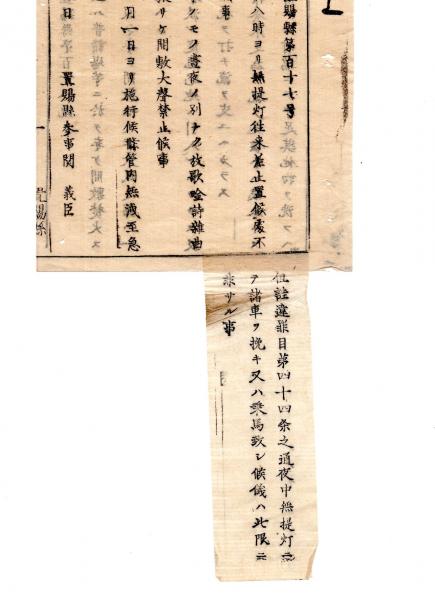 賜縣第百十七号
八時ヨリ無提灯往来差止置候處不
事
クモノ晝夜ノ別ナク放歌吟詩雑曲
リケ間敷大聲禁止候事
月一日ヨリ施行候条管内無洩至急
日置賜縣参事関 義臣
置賜縣
但詿違罪目第四十四条之通夜中無提灯ニ
テ諸車ヲ挽キ又ハ乗馬致シ候儀ハ此限ニ
非サル事